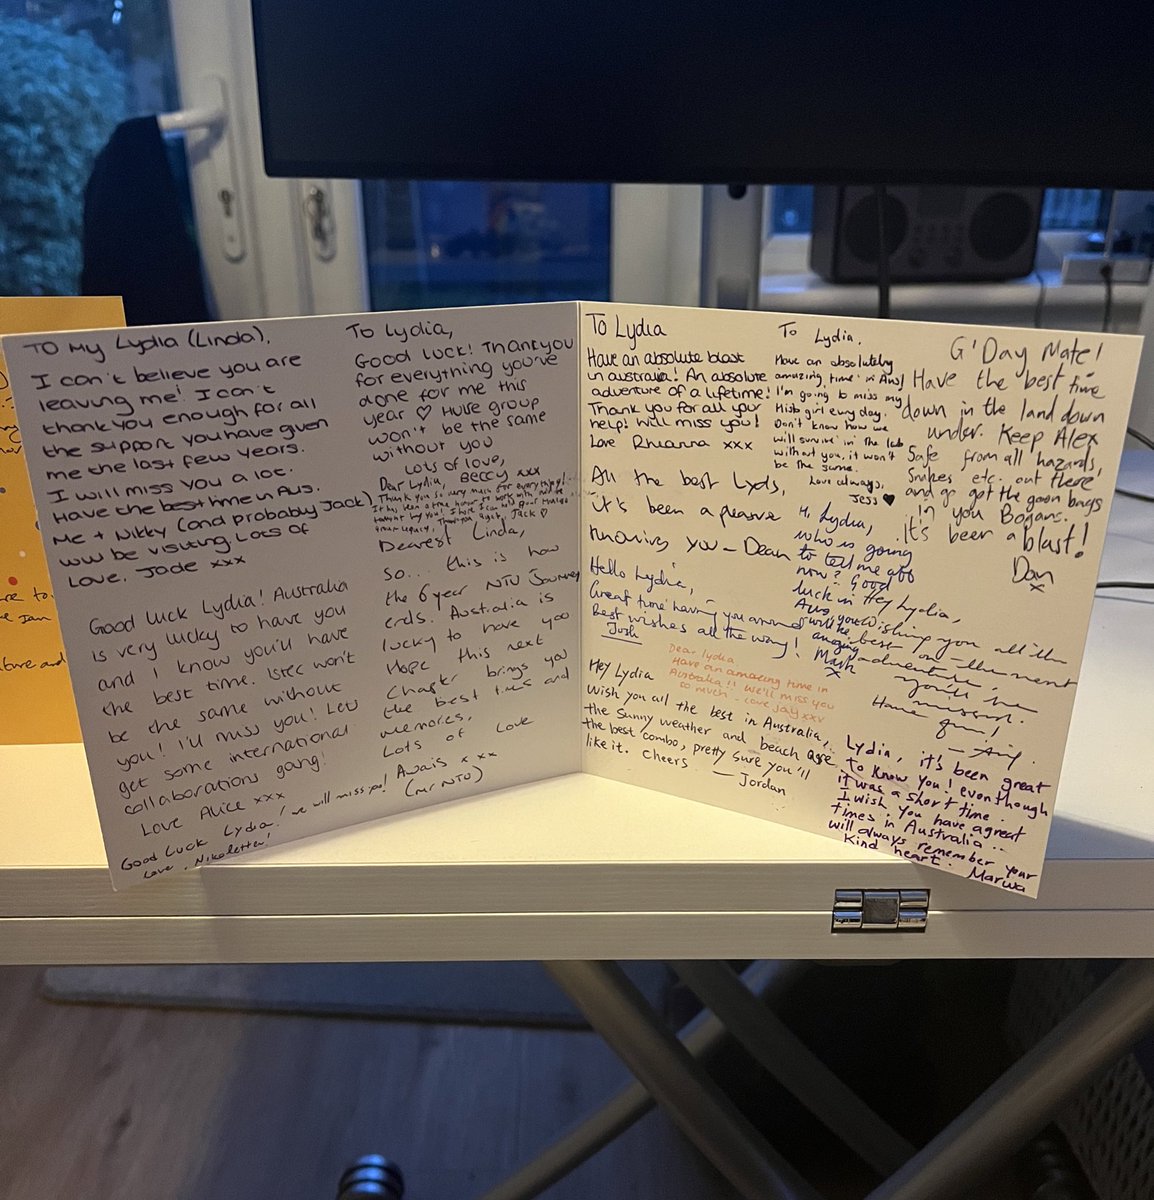 To My Lydia (Linda),
I can't believe you are
leaving me! I can't
thank you enough for all
the support you have given
me the last few years.
I will miss you a lot.
Have the best time in Aus.
Me + Nikky (and probably Jack)
will be visiting. Lots of
Love. Jade xxx
Good luck Lydia! Australia
is very lucky to have you
and I know you'll have
the best time. ISTEC won't
be the same without
you! I'll miss you! Lets
get some international
collaborations gang!
Love Alice xxx
Good Luck Lydia! we will miss you!
Love, Nikoletta!
To Lydia,
Good luck! Thank you
for everything you've
done for me this
year ♡ Huse group
won't be the same
without you
Lots of love,
Beccy xxx
Dear Lydia,
Thank you so very much for everything!
It has been a true honor to work with and be
taught by you! I hope I can
your legacy, Jack ♡
Dearest Linda,
So... this is how
the 6 year NTU Journey
ends. Australia is
lucky to have you
Hope this next
Chapter brings you
the best times and
memories.
Lots of Love
Awais x xx
(Mr NTU)
To Lydia
Have an absolute blast
in australia! An absolute
adventure of a lifetime!
Thank you for all your
help! Will miss you!
Love Rhianna xxx
All the best Lyds,
it's been a pleasure
knowing you – Dean
Hello Lydia,
Great time having you around
Best wishes all the way!
Josh
Dear Lydia
Have an amazing time in
Australia!! We'll miss you
so much - love Jay xxx
Hey Lydia
Wish you all the best in Australia,
the sunny weather and beach are
the best combo, pretty sure you'll
like it. Cheers — Jordan
To Lydia.
Have an absolutely
amazing time in Aus!
I'm going to miss my
Histo girl every day.
Don't know how we
will survive in the lab
without you, it won't
be the same.
Love always,
Jess ♥
Hi Lydia,
who is going
to tell me off
now? Good
luck in
Aus, you
will be
amazing
Mash
x
G'Day Mate!
Have the best time
down in the land down
under. Keep Alex
Safe from all hazards,
Snakes etc. out there
and go get the goon bags
in you Bogans.
it's been a blast!
Dan
x
Hey Lydia,
Wishing you all the
best on the next
adventure,
you'll be
missed.
Have
fun!
Lydia, it's been great
to know you! even though
it was a short time.
I wish you have a great
times in Australia..
will always remember your
Kind heart. Marwa